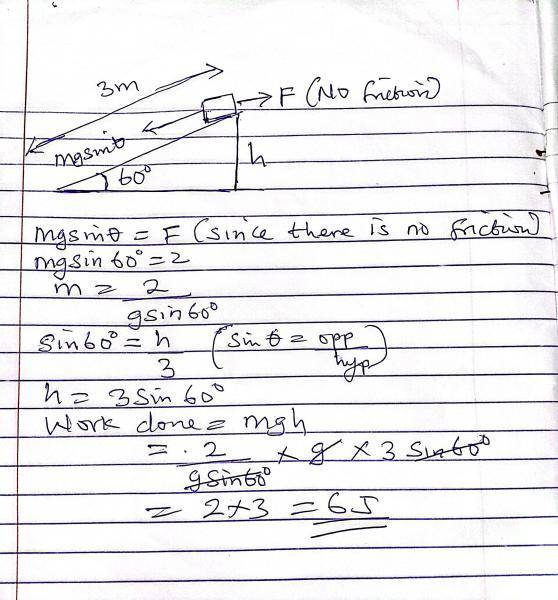 3m
F (No friction)
mgsinθ
h
60°
mgsinθ = F (since there is no friction)
mgsin 60° = 2
m = 2
gsin60°
sin60° = h
3
(sin θ = opp
hyp)
h = 3 sin 60°
Work done = mgh
= 2 × g × 3 sin60°
gsin60°
= 2 × 3 = 6J